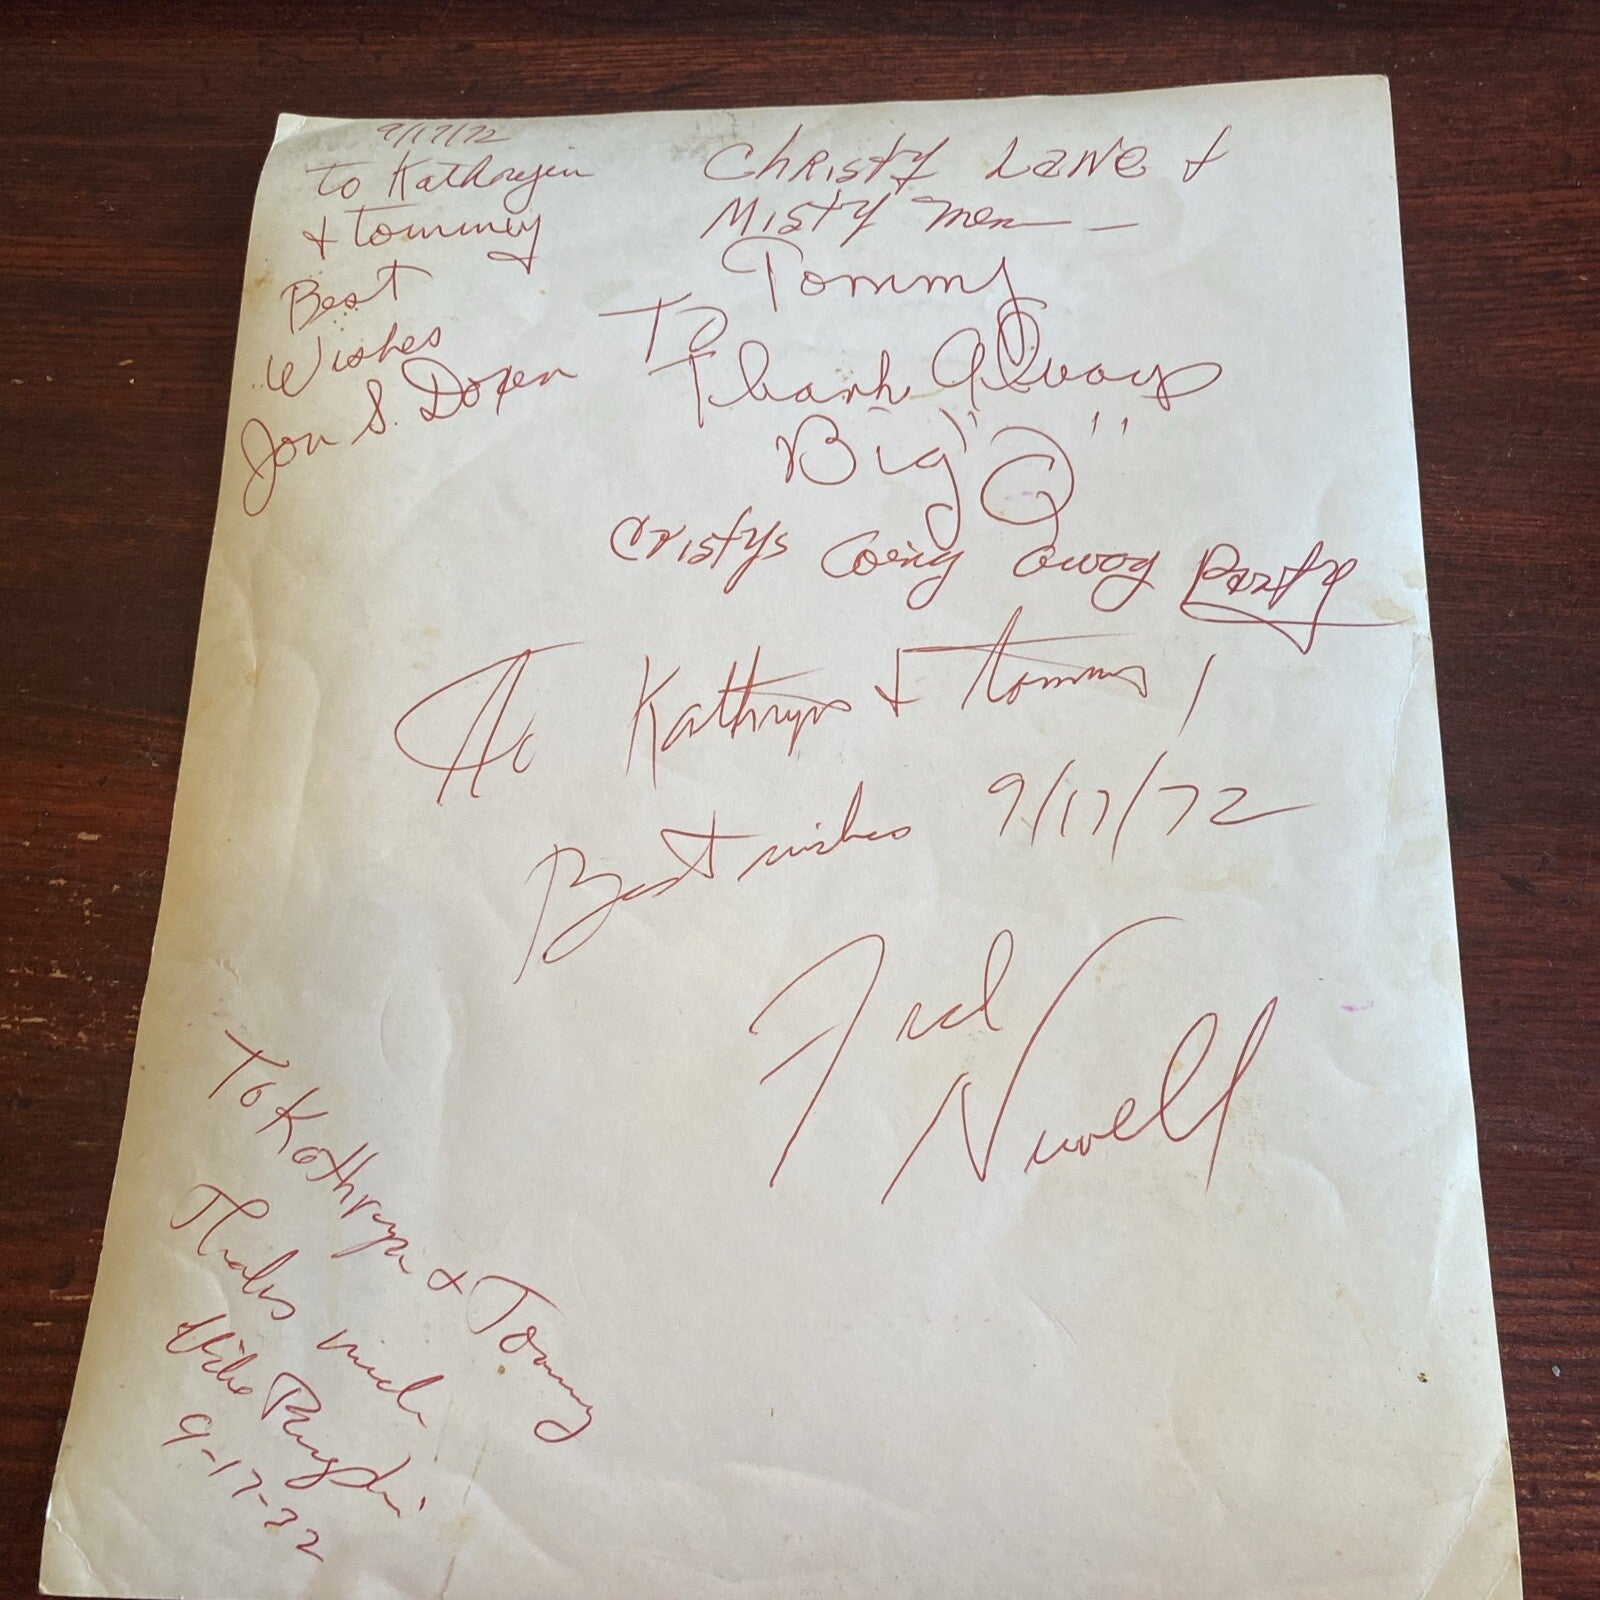 9/17/72
to Kathryin
& Tommey
Best
Wishes
Jon S. Doxen
Christy Lane &
Misty Men —
Tommy
To
Thank Always
Big "Q"
Cristys Going away Party
To Kathryn & Tommy,
Best wishes 9/17/72
Fred
Newell
To Kathryn & Tommy
Thanks much
Mike
9-17-72